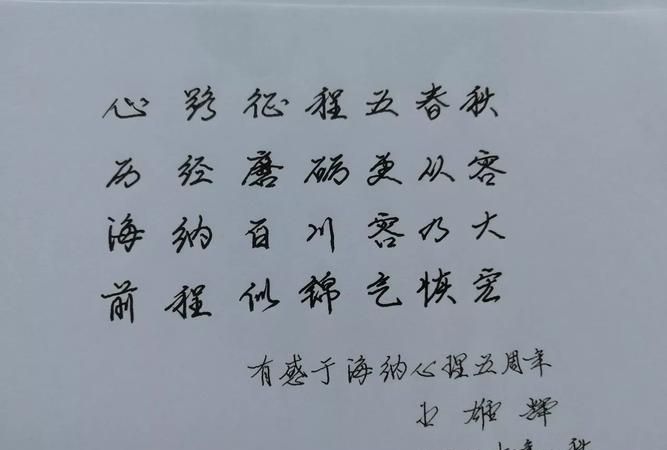 心路征程五春秋
历经磨砺更从容
海纳百川容乃大
前程似锦气恢宏
有感于海纳心理五周年
雄辉
秋